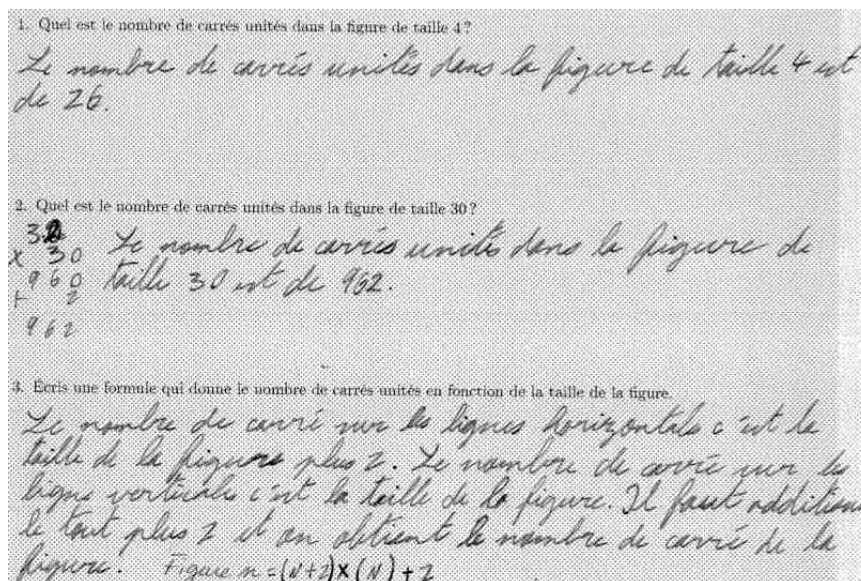 1. Quel est le nombre de carrés unités dans la figure de taille 4?
Le nombre de carrés unités dans la figure de taille 4 est
de 26.
2. Quel est le nombre de carrés unités dans la figure de taille 30?
32
x 30
960
+ 2
962
Le nombre de carrés unités dans la figure de
taille 30 est de 962.
3. Écris une formule qui donne le nombre de carrés unités en fonction de la taille de la figure.
Le nombre de carré sur les lignes horizontals c'est la
taille de la figure plus 2. Le nombre de carré sur les
ligne verticals c'est la taille de la figure. Il faut addition
le tout plus 2 et on obtient le nombre de carré de la
figure. Figure n = (N+2)x(N)+2